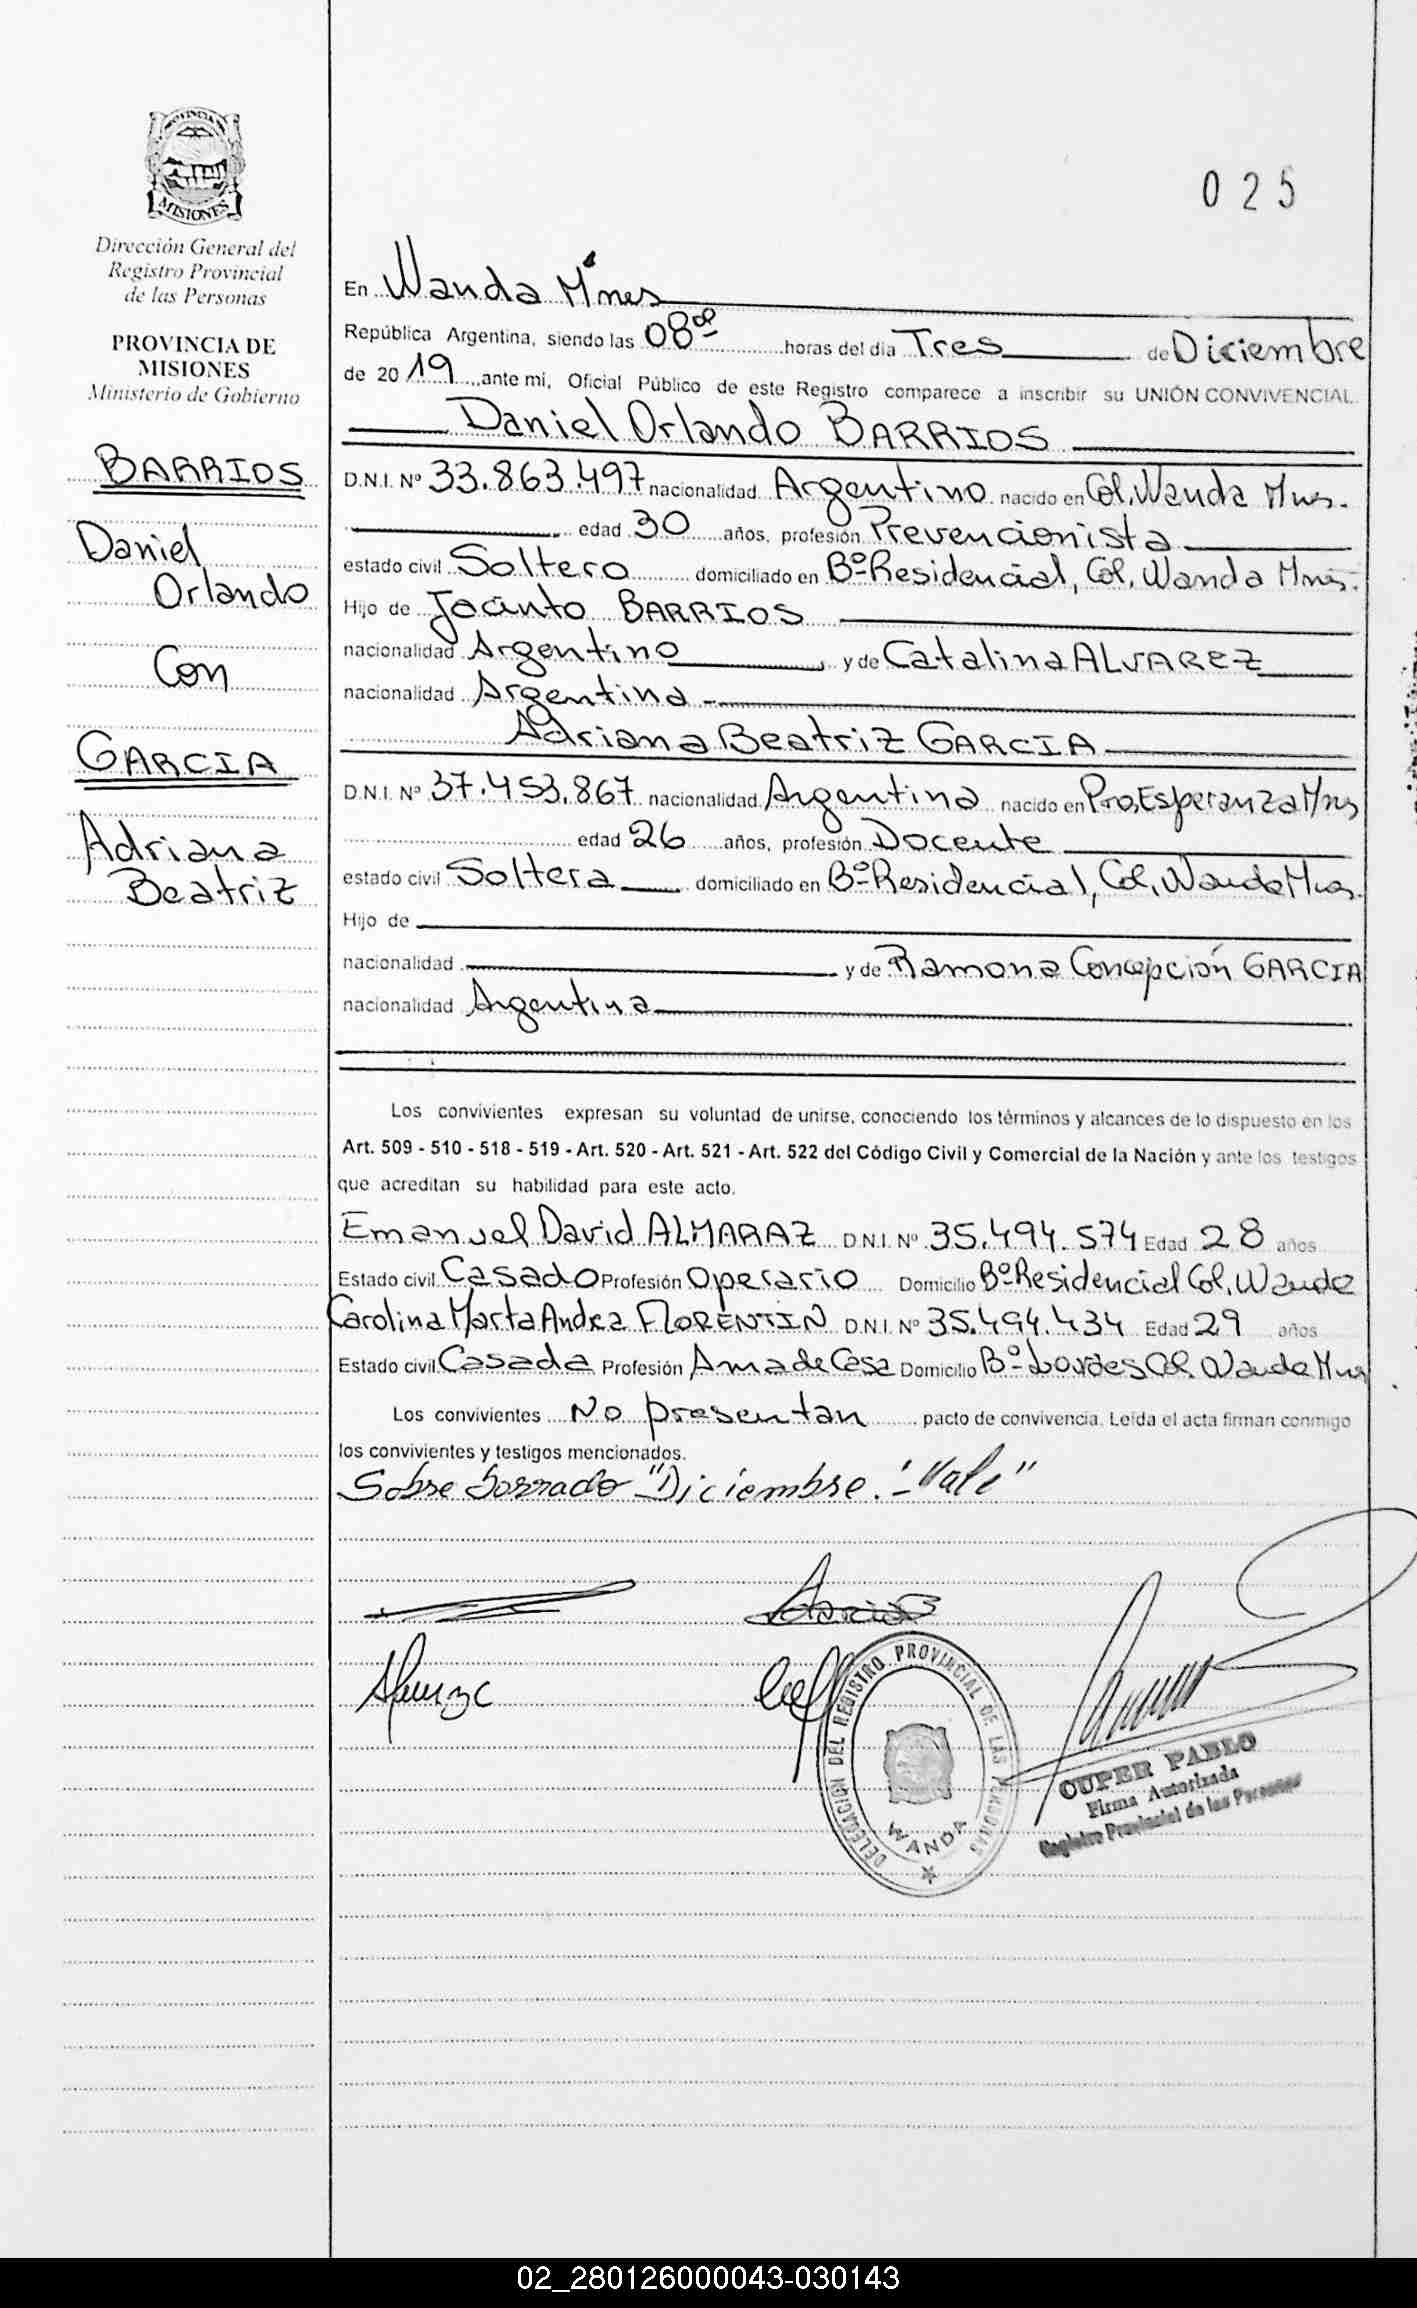 PROVINCIA
MISIONES
Dirección General del
Registro Provincial
de las Personas
PROVINCIA DE
MISIONES
Ministerio de Gobierno
BARRIOS
Daniel
Orlando
Con
GARCIA
Adriana
Beatriz
025
En Wanda Mnes
República Argentina, siendo las 08⁰⁰ horas del día Tres de Diciembre
de 2019 ante mí, Oficial Público de este Registro comparece a inscribir su UNIÓN CONVIVENCIAL
Daniel Orlando BARRIOS
D.N.I. Nº 33.863.497 nacionalidad Argentino nacido en Col. Wanda Mnes.
edad 30 años, profesión Prevencionista
estado civil Soltero domiciliado en Bº Residencial, Col. Wanda Mnes.
Hijo de Jacinto BARRIOS
nacionalidad Argentino y de Catalina ALVAREZ
nacionalidad Argentina
Adriana Beatriz GARCIA
D.N.I. Nº 37.453.867 nacionalidad Argentina nacido en Pto. Esperanza Mnes
edad 26 años, profesión Docente
estado civil Soltera domiciliado en Bº Residencial, Col. Wanda Mnes.
Hijo de
nacionalidad y de Ramona Concepción GARCIA
nacionalidad Argentina
Los convivientes expresan su voluntad de unirse, conociendo los términos y alcances de lo dispuesto en los
Art. 509 - 510 - 518 - 519 - Art. 520 - Art. 521 - Art. 522 del Código Civil y Comercial de la Nación y ante los testigos
que acreditan su habilidad para este acto.
Emanuel David ALMARAZ D.N.I. Nº 35.494.574 Edad 28 años
Estado civil Casado Profesión Operario Domicilio Bº Residencial Col. Wanda
Carolina Marta Andrea FLORENTIN D.N.I. Nº 35.494.434 Edad 29 años
Estado civil Casada Profesión Ama de Casa Domicilio Bº Lourdes Col. Wanda Mnes
Los convivientes No presentan pacto de convivencia. Leída el acta firman conmigo
los convivientes y testigos mencionados.
Sobre borrado "Diciembre.- Vale"
DELEGACION DEL REGISTRO PROVINCIAL DE LAS PERSONAS
WANDA
CUPER PABLO
Firma Autorizada
Registro Provincial de las Personas
02_280126000043-030143